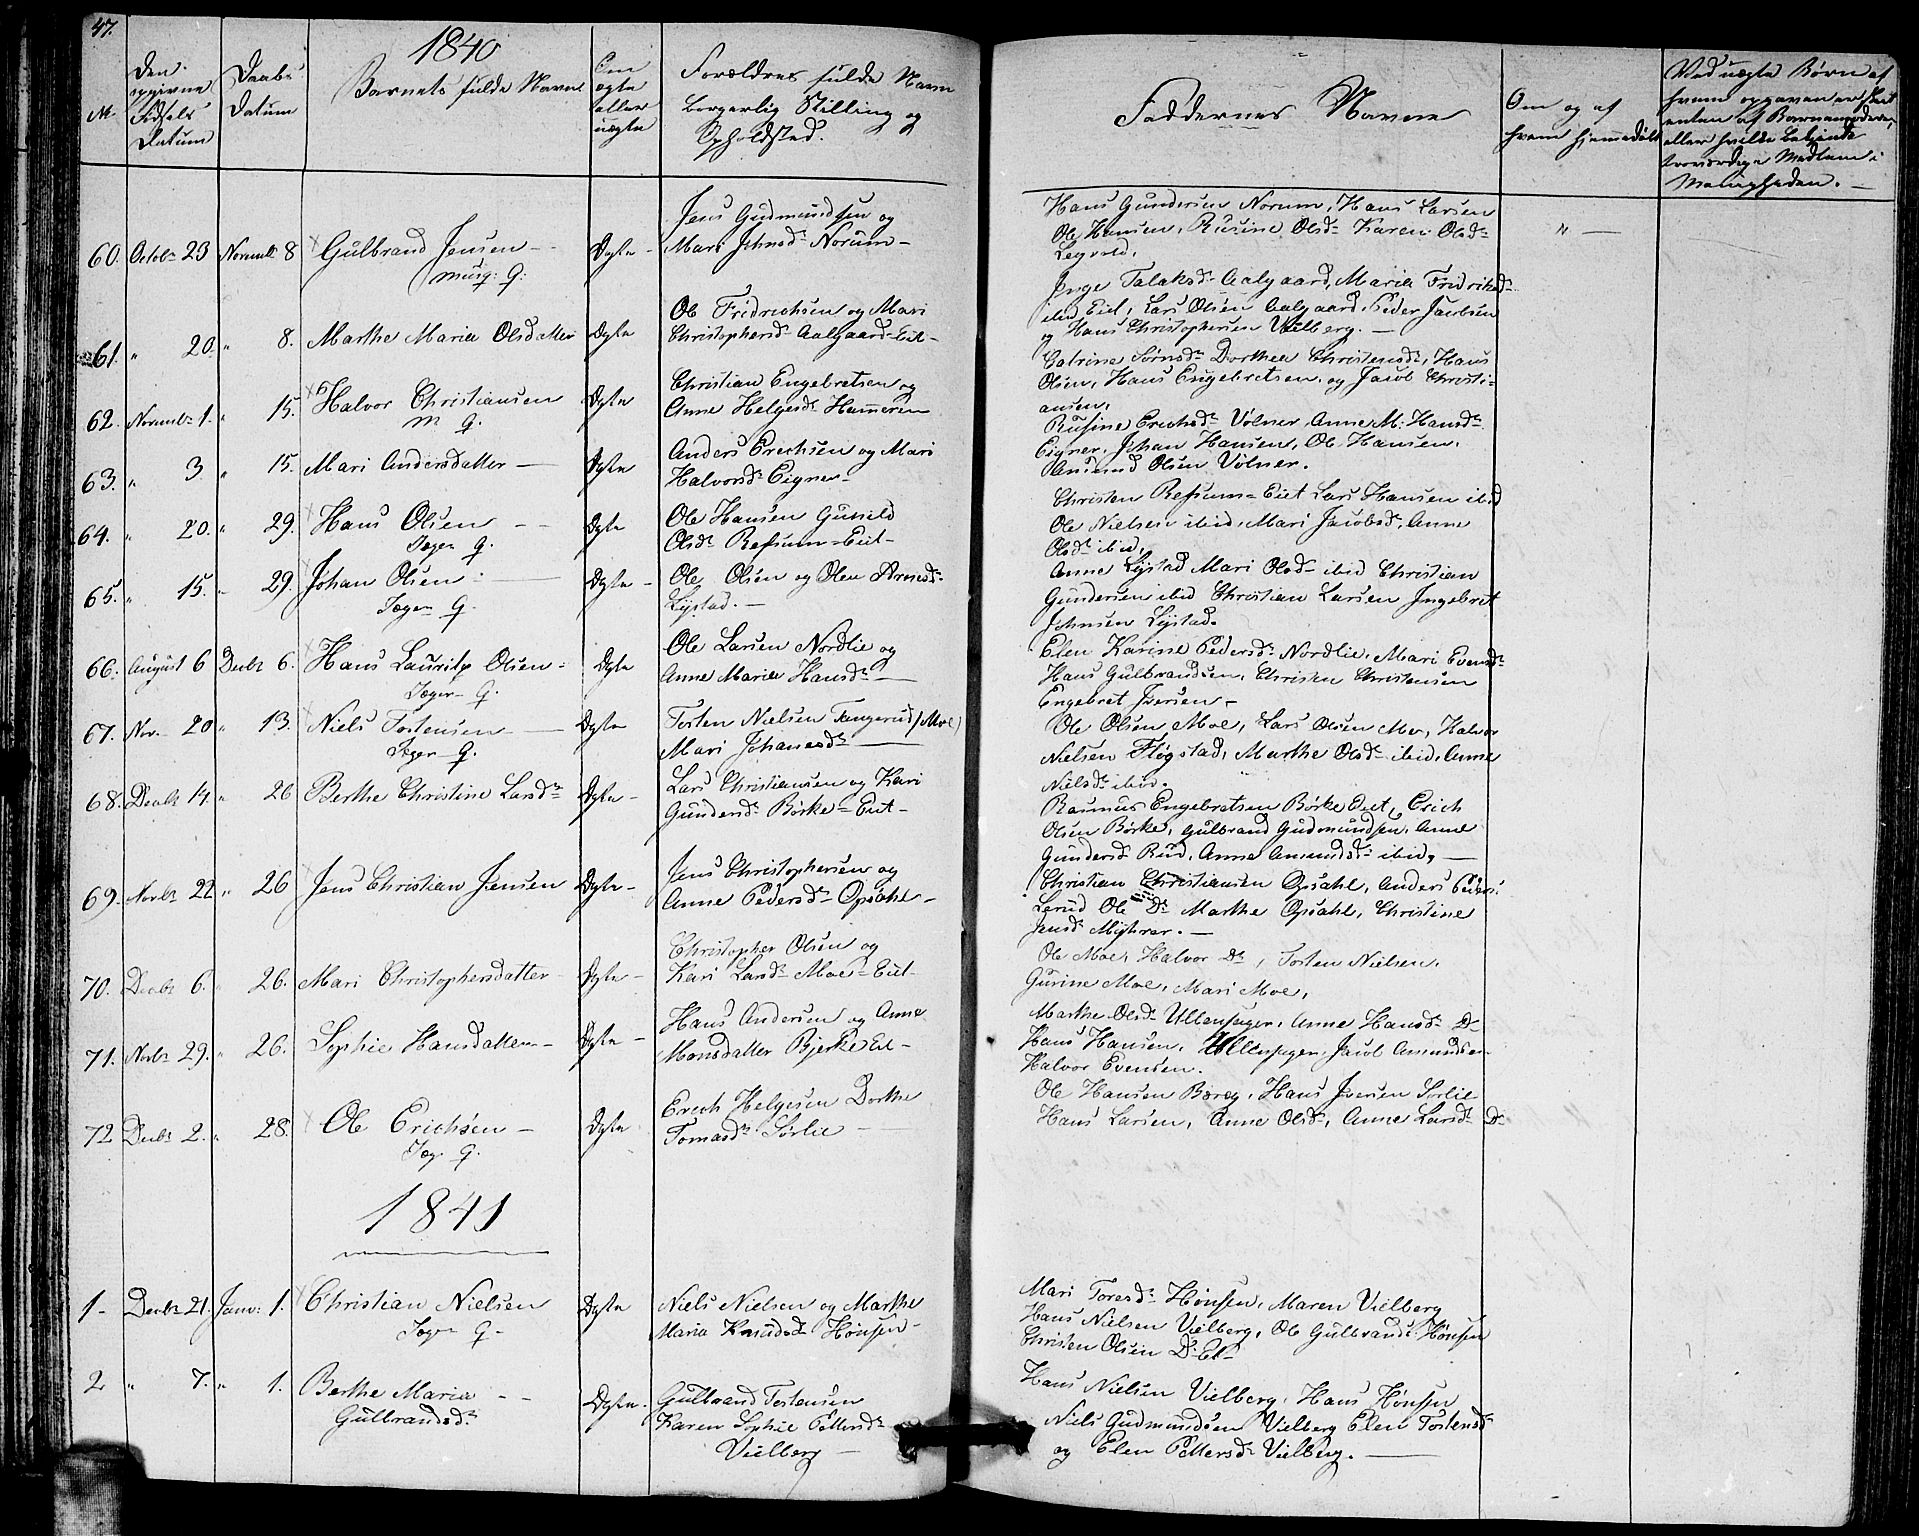 47.
1840
№
Den
opgivne
Fødsels
Datum
Daabs
Datum
Barnets fulde Navn
Om
ægte
eller
uægte
Forældres fulde Navn
borgerlig Stilling og
Opholdsted.
60. Octobr 23 Novembr 8 Gulbrand Jensen - Ægte -
Jens Gudmundsen og
Mari Johnsd: Norum -
61. " 20. " 8. Marthe Maria Olsdatter Ægte
Ole Fredrichsen og Mari
Christophersd: Aalgaard-Eiet -
62. Novembr 1. " 15. Halvor Christiansen Ægte
Christian Engebretsen og
Anne Helgesd: Hammeren
63. " 3. " 15. Mari Andersdatter - Ægte
Anders Erechsen og Mari
Halvorsd: Eigner -
64. " 20. " 29. Hans Olsen - Ægte
Jæger G.
Ole Hansen Gunild
Olsd: Refsum-Eiet -
65. " 15. " 29. Johan Olsen - Ægte -
Jæger G.
Ole Olsen og Olea Arnesd:
Lystad. -
66. August 6 Decbr 6. Hans Lauritz Olsen - Ægte
Jæger G.
Ole Larsen Nordlie og
Anne Maria Hansd: -
67. Nov. 20 " 13. Niels Tostensen - Ægte
Jæger G.
Tosten Nielsen Tangerud (Moe)
Mari Johanesd: -
68. Decbr 14. " 26 Berthe Christine Larsd: Ægte -
Lars Christiansen og Kari
Gundersd: Børke-Eiet -
69. Novbr 22 " 26 Jens Christian Jensen Ægte -
Jens Christophersen og
Anne Pedersd: Opsahl -
70. Decbr 6. " 26. Mari Christophersdatter Ægte -
Christopher Olsen og
Kari Larsd: Moe-Eiet -
71. Novbr 29. " 26. Sophie Hansdatter - Ægte -
Hans Andersen og Anne
Monsdatter Bjerke Eiet -
72. Decbr 2. " 28. Ole Erichsen - Ægte
Jæg. G.
Erech Helgesen Dorthe
Tomasd: Sørlie -
1841
1 - Decbr 21. Janv: 1. Christian Nielsen Ægte
Jæger G.
Niels Nielsen og Marthe
Maria Knudsd: Hønsen -
2 " 7. " 1. Berthe Maria - Ægte -
Gulbrandsd:
Gulbrand Tostensen
Karen Sophie Pettersd:
Vielberg -
Faddernes Navne
Om og af
hvem hjemmedøbt
Ved uægte Børn af
hvem opgaven er skeet
enten af Barnemoderen,
eller hvilke bekjendte
troværdige Medlem i
Menigheden. -
Hans Gundersen Norum, Hans Larsen
Ole Hansen, Rusine Olsd: Karen Olsd:
" -
Inge Talaksd: Aalgaard, Maria Fridriksd:
ibid Eiet, Lars Olsen Aalgaard, Peder Jacobsen
og Hans Christophersen Vielberg. -
Catrine Sørnsd: Dorthea Christensd:, Hans
Olsen, Hans Engebretsen, og Jacob Christi-
ansen,
Rusine Erechsd: Vølner, Anne M. Hansd:
Eigner, Johan Hansen, Ole Hansen.
Amund Olsen Vølner.
Christen Refsum-Eiet Lars Hansen ibid
Ole Nielsen ibid, Mari Jacobsd:, Anne
Olsd: ibid,
Anne Lystad Mari Olsd: ibid Christian
Gundersen ibid Christian Larsen Ingebret
Johnsen Lystad.
Elen Karine Pedersd: Nordlie, Mari Evensd:
Hans Gulbrandsen, Christen Christensen
Engebret Iversen -
Ole Olsen Moe, Lars Olsen Moe, Halvor
Nielsen Fløgstad, Marthe Olsd: ibid, Anne
Nielsd: ibid.
Rasmus Engebretsen Børke Eiet, Erich
Olsen Børke, Gulbrand Gudmundsen, Anne
Gundersd: Rud, Anne Amundsd: ibid, -
Christian Christiansen Opsahl, Anders Peders:
Lerud Ole Do: Marthe Opsahl, Christine
Jensd:
Ole Moe, Halvor Do:, Tosten Nielsen,
Gurine Moe, Mari Moe,
Marthe Olsd: Ullensager, Anne Hansd: Do:
Hans Hansen, Ullensager, Jacob Amundsen
Halvor Evensen.
Ole Hansen Berg, Hans Iversen Sørlie
Hans Larsen, Anne Olsd:, Anne Larsd: Do:
Mari Toresd: Hønsen, Maren Vielberg
Hans Nielsen Vielberg, Ole Gulbrands: Hønsen
Christen Olsen Do: Et -
Hans Nielsen Vielberg, Hans Hønsen
Niels Gudmundsen Vielberg Elen Tostensd:
og Elen Pettersd: Vielberg. -